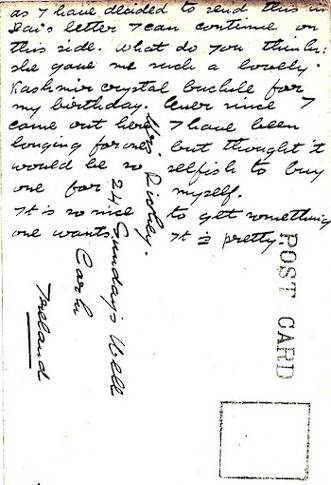 as I have decided to send this in
Dai's letter I can continue on
this side. What do you think:
she gave me such a lovely
Kashmir crystal buckle for
my birthday. Ever since I
came out here I have been
longing for one but thought it
would be so selfish to buy
one for myself.
It is so nice to get something
one wants. It is pretty.
Mrs.
24, Sunday's Well
Cork
Ireland
POST CARD